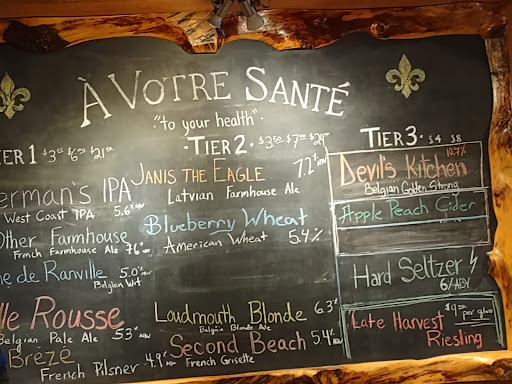 À VOTRE SANTÉ
"to your health"
ER 1 $3 50 $6 00 $21 00
ERMAN'S IPA
WEST COAST IPA 5.6% ABV
OTHER FARMHOUSE
FRENCH FARMHOUSE ALE 7.6% ABV
NE DE RANVILLE 5.0% ABV
BELGIAN WIT
LLE ROUSSE
BELGIAN PALE ALE 5.3% ABV
BRÉZÉ
FRENCH PILSNER 4.9% ABV
·TIER 2· $3 50 $7 00 $24 00
JANIS THE EAGLE 7.2% ABV
LATVIAN FARMHOUSE ALE
BLUEBERRY WHEAT
AMERICAN WHEAT 5.4%
LOUDMOUTH BLONDE 6.3%
BELGIAN BLONDE ALE
SECOND BEACH 5.4% ABV
FRENCH GRISETTE
TIER 3· $4 $8
DEVIL'S KITCHEN 12.7%
BELGIAN GOLDEN STRONG
APPLE PEACH CIDER
HARD SELTZER
6% ABV
LATE HARVEST RIESLING
$9 00 PER GLASS